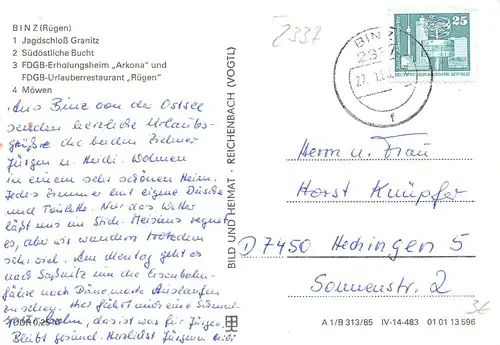 2337
BINZ (Rügen)
1 Jagdschloß Granitz
2 Südöstliche Bucht
3 FDGB-Erholungsheim „Arkona“ und
FDGB-Urlauberrestaurant „Rügen“
4 Möwen
Aus Binz an der Ostsee
senden herzliche Urlaubs-
grüße die beiden
Jürgen u. Heidi. Wohnen
in einem sehr schönen Heim.
Jedes Zimmer hat eigene Dusche
und Toilette. Nur das Wetter
läßt uns im Stich. Meistens regnet
es, aber wir wandern trotzdem
sehr viel. Am Montag geht es
nach Saßnitz um die Eisenbahn-
fähre nach Dänemark
Hier fährt auch eine
bahn, das ist was für Jürgen.
Bleibt gesund. Herzlichst Jürgen u. Heidi
DDR 0,25 M
BILD UND HEIMAT · REICHENBACH (VOGTL)
BINZ
2337
27.
f
25
Herrn u. Frau
Horst Knüpfer
D 7450 Hechingen 5
Sonnenstr. 2
3€
A 1/B 313/85 IV-14-483 01 01 13 596